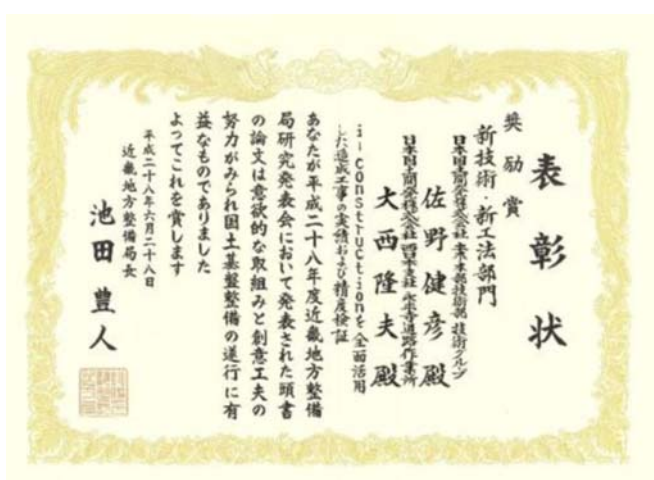 表彰状
奨励賞
新技術・新工法部門
日本国土開発株式会社 土木本部技術部 技術グループ
佐野健彦 殿
日本国土開発株式会社 西日本支社 永楽寺道路作業所
大西隆夫 殿
i-constructionを全面活用
した造成工事の実績および精度検証
あなたが平成二十八年度近畿地方整備
局研究発表会において発表された頭書
の論文は意欲的な取組みと創意工夫の
努力がみられ国土基盤整備の遂行に有
益なものでありました
よってこれを賞します
平成二十八年六月二十八日
近畿地方整備局長
池田豊人